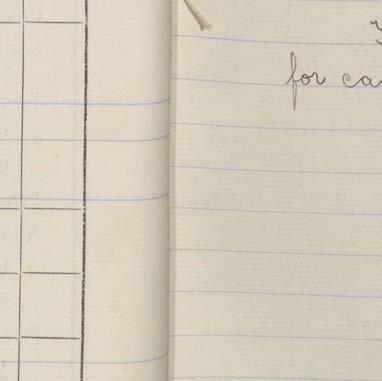 for ca